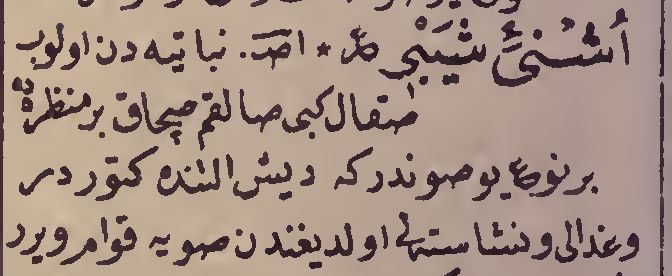 أُشْنِيَّ شَيَبِي * اصـ. نباتيه دن اولوب
صقال كبی صالقم صچاق بر منظره ده
بر نوع يوصوندر كه ديش التنده كتوردر
وغدالی ونشاسته لی اولديغندن صويه قوام ويرر